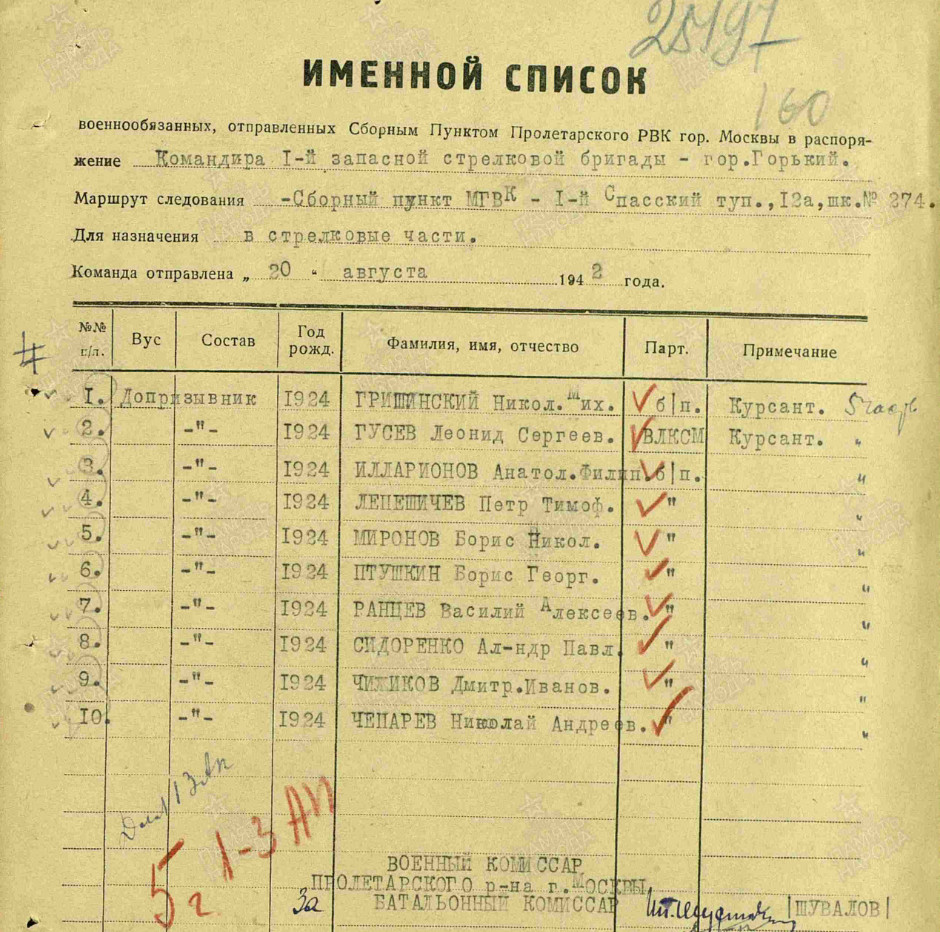 25197
160
ИМЕННОЙ СПИСОК
военнообязанных, отправленных Сборным Пунктом Пролетарского РВК гор. Москвы в распоря-
жение Командира I-й запасной стрелковой бригады - гор.Горький.
Маршрут следования -Сборный пункт МГВК - I-й Спасский туп.,I2а,шк.№ 274.
Для назначения в стрелковые части.
Команда отправлена „ 20 " августа 1942 года.
№№ п/п. Вус Состав Год рожд. Фамилия, имя, отчество Парт. Примечание
I. Допризывник I924 ГРИШИНСКИЙ Никол.Мих. б|п. Курсант.
2. -"- I924 ГУСЕВ Леонид Сергеев. ВЛКСМ Курсант. "
3. -"- I924 ИЛЛАРИОНОВ Анатол.Филип. б|п. "
4. -"- I924 ЛЕПЕШИЧЕВ Петр Тимоф. " "
5. -"- I924 МИРОНОВ Борис Никол. " "
6. -"- I924 ПТУШКИН Борис Георг. " "
7. -"- I924 РАНЦЕВ Василий Алексеев. " "
8. -"- I924 СИДОРЕНКО Ал-ндр Павл. " "
9. -"- I924 ЧИЖИКОВ Дмитр.Иванов. " "
IO. -"- I924 ЧЕПАРЕВ Николай Андреев. " "
5 1-3 АП
г
ВОЕННЫЙ КОМИССАР
ПРОЛЕТАРСКОГО р-на г.МОСКВЫ
За БАТАЛЬОННЫЙ КОМИССАР |ШУВАЛОВ|